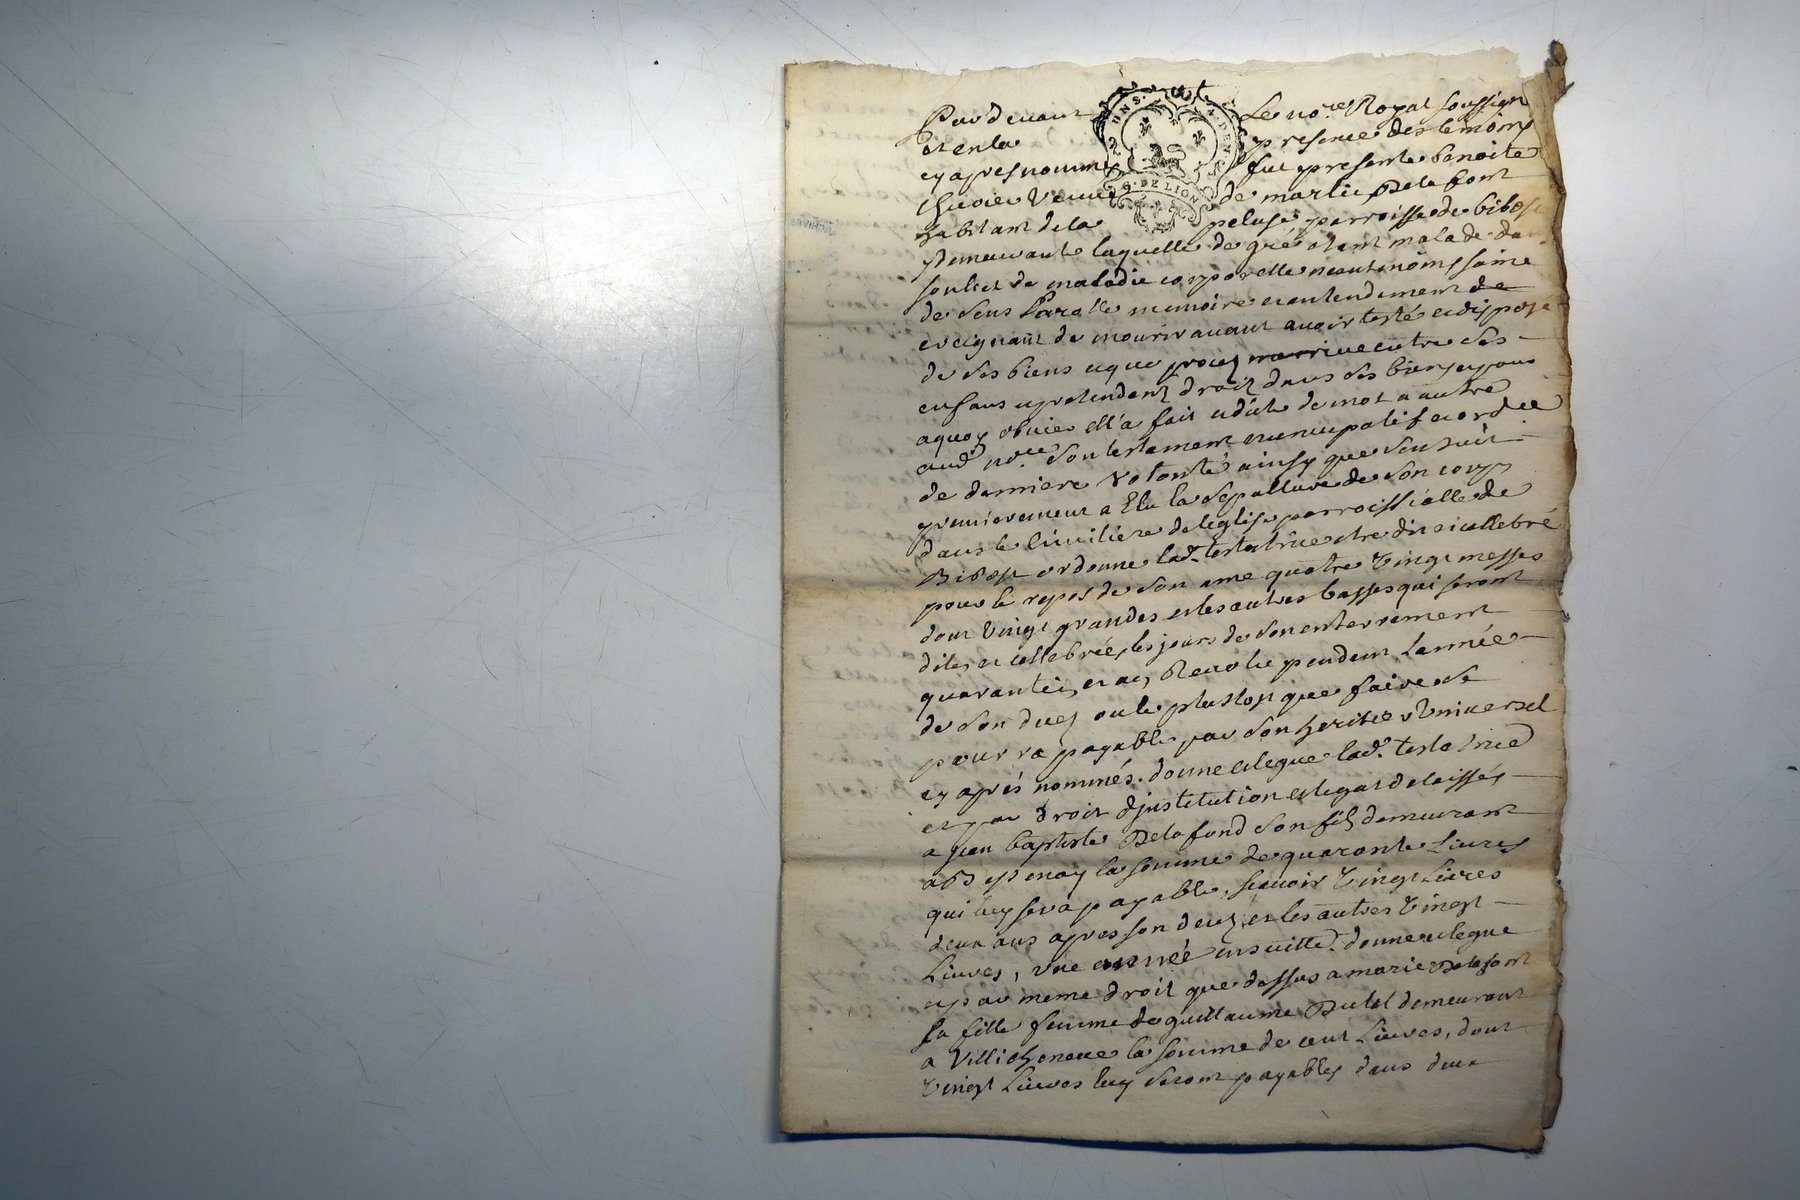 Pardevant Le no.re Royal soussigné
et en la presence des temoins
cy apres nommés fut presente benoite
veuve de martin Delafont
habitant de la peluse parroisse de bibost
demeurante laquelle de gré étant malade dans
son lict de maladie corporelle neantmoins saine
de sens Parolle memoire et entendement
creignant de mourir avant avoir testé et disposé
de ses biens et que procez n'arrive entre ses
enfans et pretendent droit dans ses biens pour
aquoy obvier ell'a fait et dicté de mot a autre
aud no.re son testament nuncupatif et ordce
de derniere volonté ainsy que sensuit
premierement a Elu la sepulture de son corps
dans le cimitiere de leglise parroissialle de
Bibost ordonne lad. testatrice etre dit et cellebré
pour le repos de son ame quatre vingt messes
dont vingt grandes et les autres basses qui seront
dites et cellebrées les jours de son enterrement
quarantein, et an Revolu pendant Lannée
de son ducez ou le plustost que faire se
pourra payable par son heritier Universel
cy aprés nommés. donne et legue lad. testatrice
et par droit d'institution et legat delaissés
a jean baptiste Delafond son fils demeurant
a Bessenay la somme de quarante Livres
qui luy sera payable, scavoir vingt Livres
deux ans apres son decez, et les autres vingt
Livres, une année ensuitte. donne et legue
et par meme droit que dessus a marie Delafont
sa fille femme de guillaume Dutel demeurant
a Villechenêve la somme de cent Livres, dont
vingt Livres luy seront payables dans deux
G. DE LION